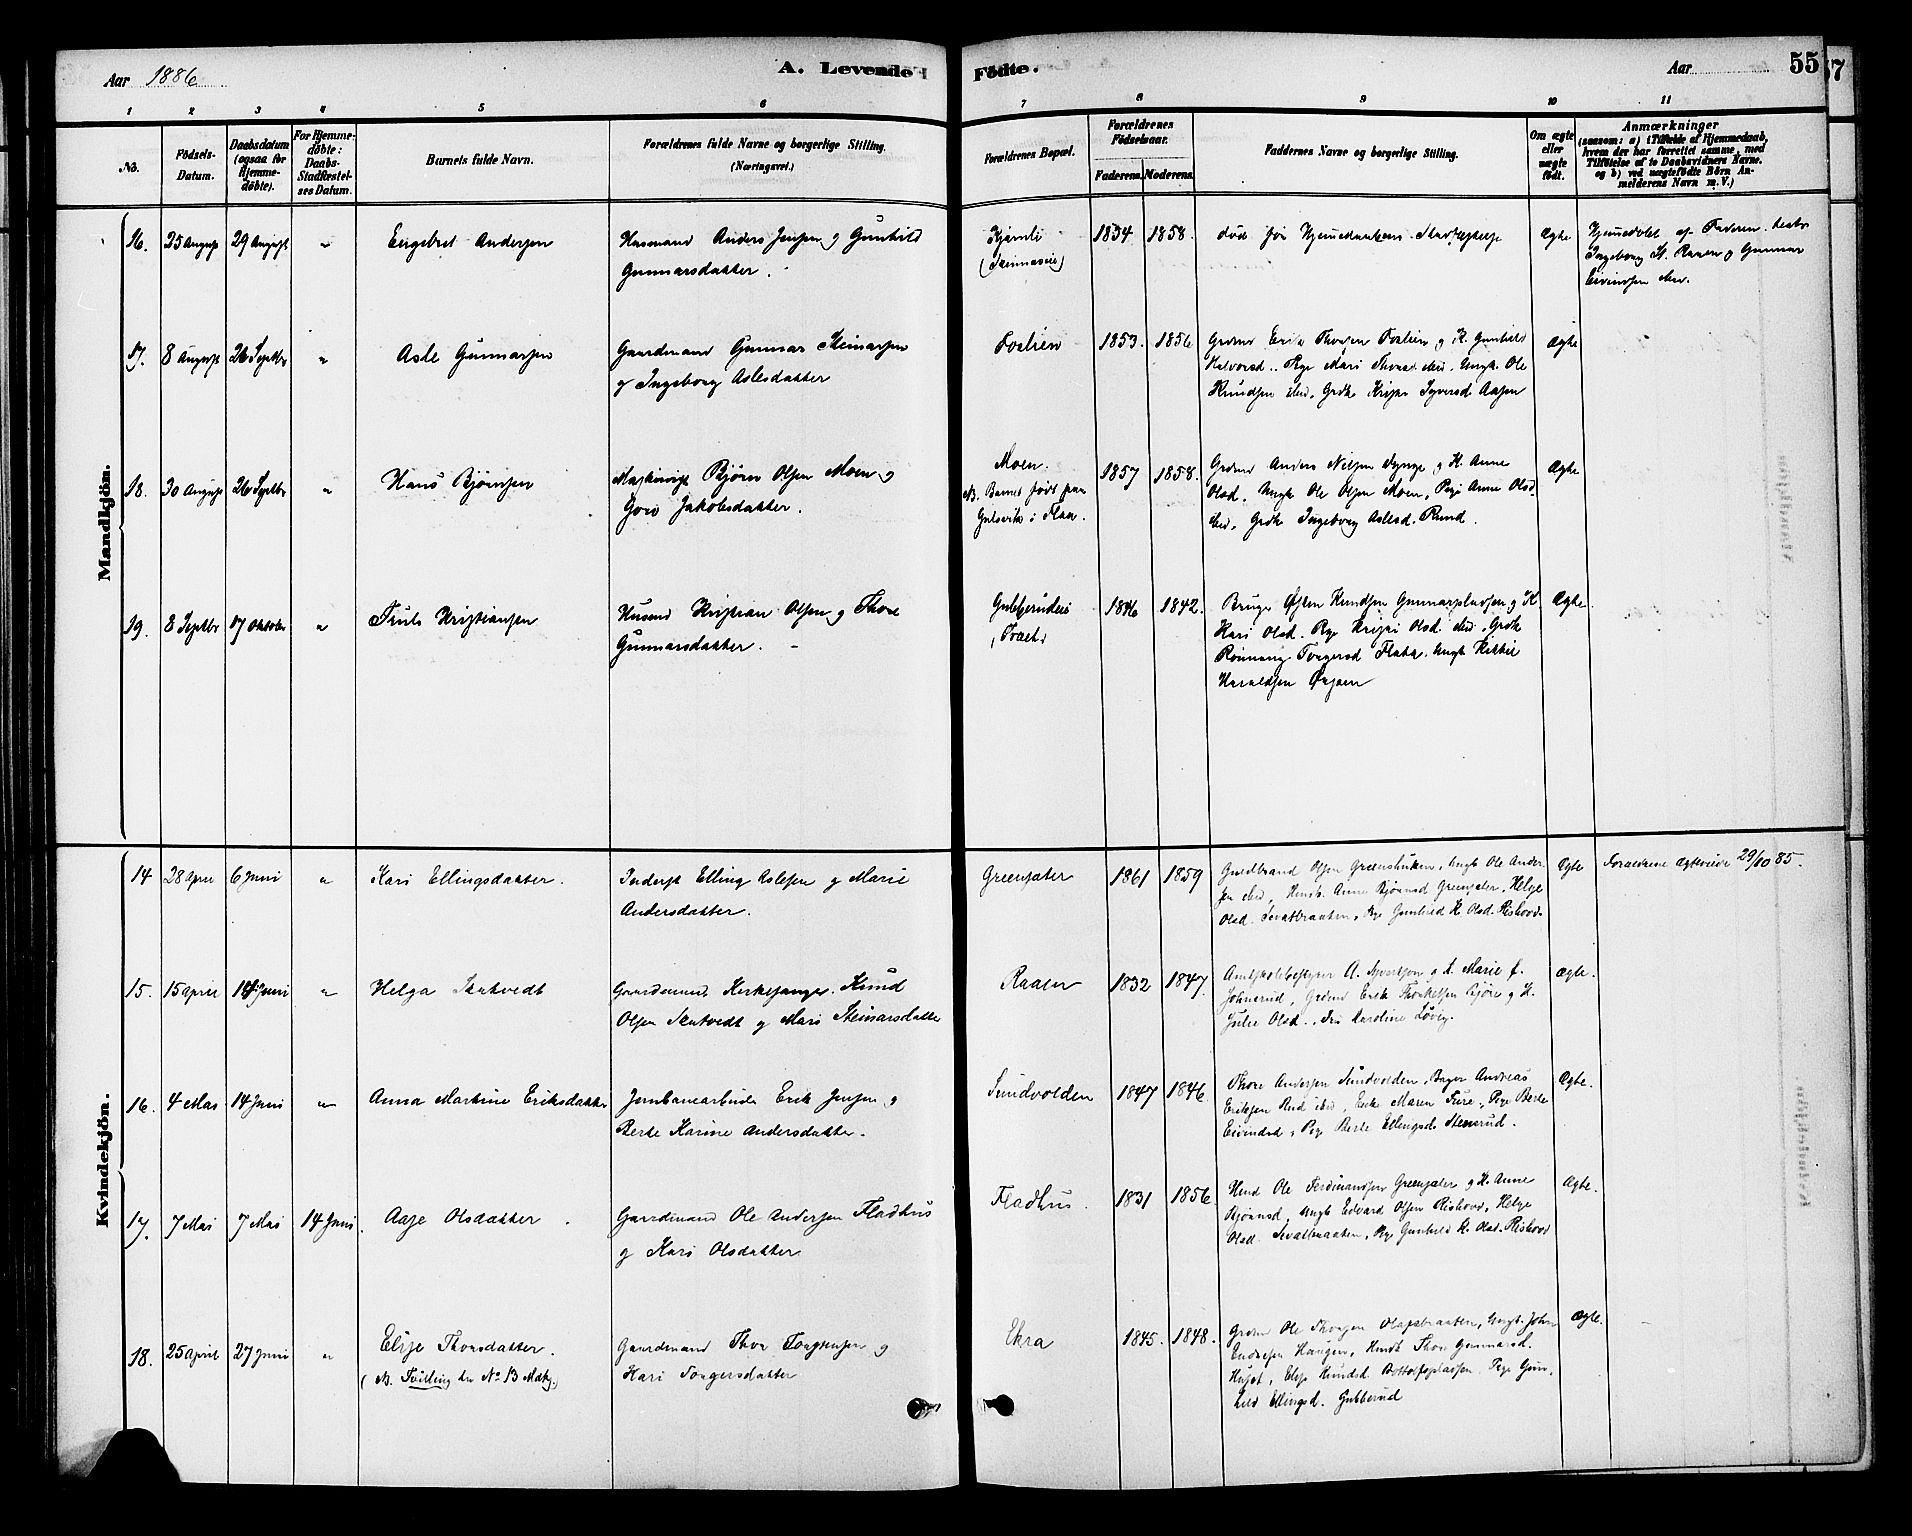 Aar 1886
A. Levende
Fødte.
Aar
55
57
1 2 3 4 5 6 7 8 9 10 11
No.
Fødsels-Datum.
Daabsdatum (ogsaa for Hjemmedøbte).
For Hjemmedøbte: Daabs-Stadfæstelses Datum.
Barnets fulde Navn.
Forældrenes fulde Navne og borgerlige Stilling.
(Næringsvei.)
Forældrenes Bopæl.
Forældrenes Fødselsaar.
Faderens. Moderens.
Faddernes Navne og borgerlige Stilling.
Om ægte eller uægte født.
Anmærkninger
(saasom: a) i Tilfælde af Hjemmedaab, hvem der har forrettet samme, med Tilføielse af to Daabsvidners Navne. og b) ved uægtefødte Børn Anmelderens Navn m. V.)
Mandkjön.
16. 25 August 29 August " Engebret Andersen
Husmand Anders Jensen og Gunhild
Gunnarsdatter.
Kjemli
1834 1858. død før Hjemmedaabens Stadfæstelse Ægte
Hjemmedøbt af Faderen.
Ingeborg K. Raaen og Gunnar
Eivindsen ibid.
17. 8 August 26 Septbr " Asle Gunnarsen
Gaardmand Gunnar Steinarsen
og Ingeborg Aslesdatter
1853. 1856
Grdmd Erik Thorsen og K. Gunhild
Halvorsd., Pige Mari Thorsd. ibid., Ungk. Ole
Knudsen ibid., Grdk. Kristi Syversd. Aasen
Ægte
18. 30 August 26 Septbr " Hans Bjørnsen
Bjørn Olsen Moen og
Goro Jakobsdatter.
Moen.
NB. Barnet født paa
Gulsvik i Flaa.
1857 1858.
Grdmd Anders Nilsen og K. Anne
Olsd. Ungk. Ole Olsen Moen, Pige Anne Olsd.
ibid., Grdk. Ingeborg Aslesd. Rund.
Ægte
19. 8 Septbr 17 Oktober " Truls Kristiansen
Husmd Kristian Olsen og Thore
Gunnarsdatter.
Gubberudeie
1846 1842.
Bruger Østen Knudsen Gunnarspladsen og K.
Kari Olsd. Pige Kristi Olsd. ibid., Grdk.
Rønnaug Torgersd. Flata. Ungk. Kittil
Haraldsen
Ægte
Kvindekjön.
14 28 April 6 Juni " Kari Ellingsdatter.
Inderst Elling Aslesen og Marie
Andersdatter.
Greensater 1861 1859
Gudbrand Olsen Ungk. Ole Ander-
sen ibid., Anne Bjørnsd. Greensater, Helge
Olsd. Sevalbraaten, Pige Gunhild K. Olsd. Rishovd
Ægte
Forældrene Ægteviede 29/10 85.
15. 15 April 14 Juni " Helga Skatvedt
Gaardmand, Kirkesanger Knud
Olsen Skatvedt og Mari Steinarsdatter
Raaen 1832 1847.
Amtskolebestyrer A. Syvertson og K. Marie f.
Johnsrud, Grdmd Erik Thorkelsen Bjøre og K.
Julie Olsd., Karoline Løvig.
Ægte.
16. 4 Mai 14 Juni " Anna Martine Eriksdatter
Jernbanearbeider Erik Jensen og
Berte Karine Andersdatter.
Sundvolden 1847 1846.
Thore Andersen Sundvolden, Bager Andreas
Eriksen Rud ibid, Enke Maren Ture, Pige Berte
Eivindsd, Pige Berte Ellingsd. Stensrud.
Ægte.
17. 7 Mai 7 Mai 14 Juni. Aase Olsdatter.
Gaardmand Ole Andersen Fladhus
og Kari Olsdatter
Fladhus. 1831 1856.
Hmd Ole Ferdinandsen Greensater og K. Anne
Bjørnsd, Ungk. Edvard Olsen Rishovd, Helge
Olsd. Sevalbraaten, Pige Gunhild K. Olsd. Rishovd
Ægte.
18. 25 April 27 Juni " Elise Thorsdatter.
(NB. Tvilling til No 13 Mdkj.)
Gaardmand Thor Torstensen og
Kari Torgersdatter
Ekra 1845. 1848.
Grdmd Ole Thorsen Olafsbraaten, Ungk. John
Endresen Haugen, Thore Gunnarsd.
Huset, Elise Knudsd. Bottolfspladsen. Pige Gun-
hild Ellingsd. Gubberud
Ægte.